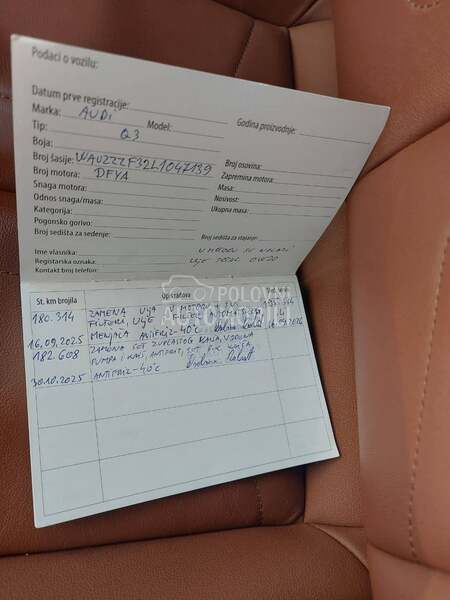 Podaci o vozilu:
Datum prve registracije:
Marka: AUDI Model: Godina proizvodnje:
Tip: Q3
Boja:
Broj šasije: WAUZZZF32L1047139 Broj osovina:
Broj motora: DFYA Zapremina motora:
Snaga motora: Masa:
Odnos snaga/masa: Nosivost:
Kategorija: Ukupna masa:
Pogonsko gorivo:
Broj sedišta za sedenje: Broj sedišta za stajanje:
Ime vlasnika: U MOTORU SE NALAZI
Registarska oznaka: ULJE
Kontakt broj telefona:
POLOVNI
AUTOMOBILI
St. km brojila
180.314 ZAMENA ULJA U MOTORU
FILTERI, ULJE FILTER
16.09.2025 MENJAČA ANTIFRIZ-40°C
182.608 ZAMENA SET ZUPČASTOG KAIŠA, VODENA
PUMPA I KAIŠ, ANTIFRIZ, SET
30.10.2025 ANTIFRIZ-40°C